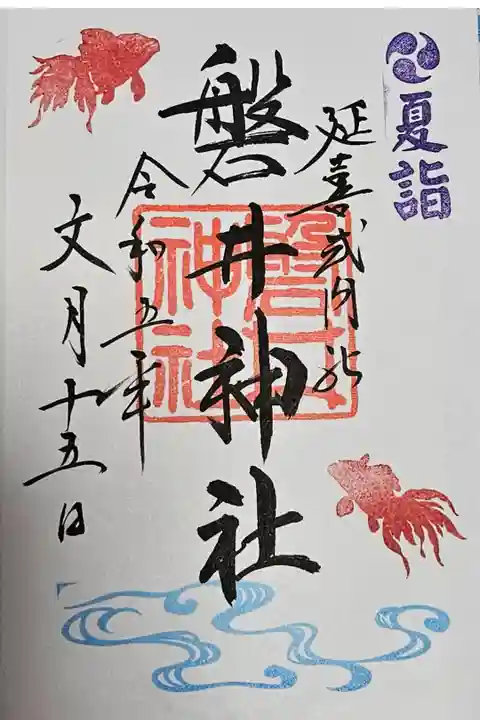 夏詣
延喜式内社
磐井神社
磐井
神社
令和五年
文月十五日